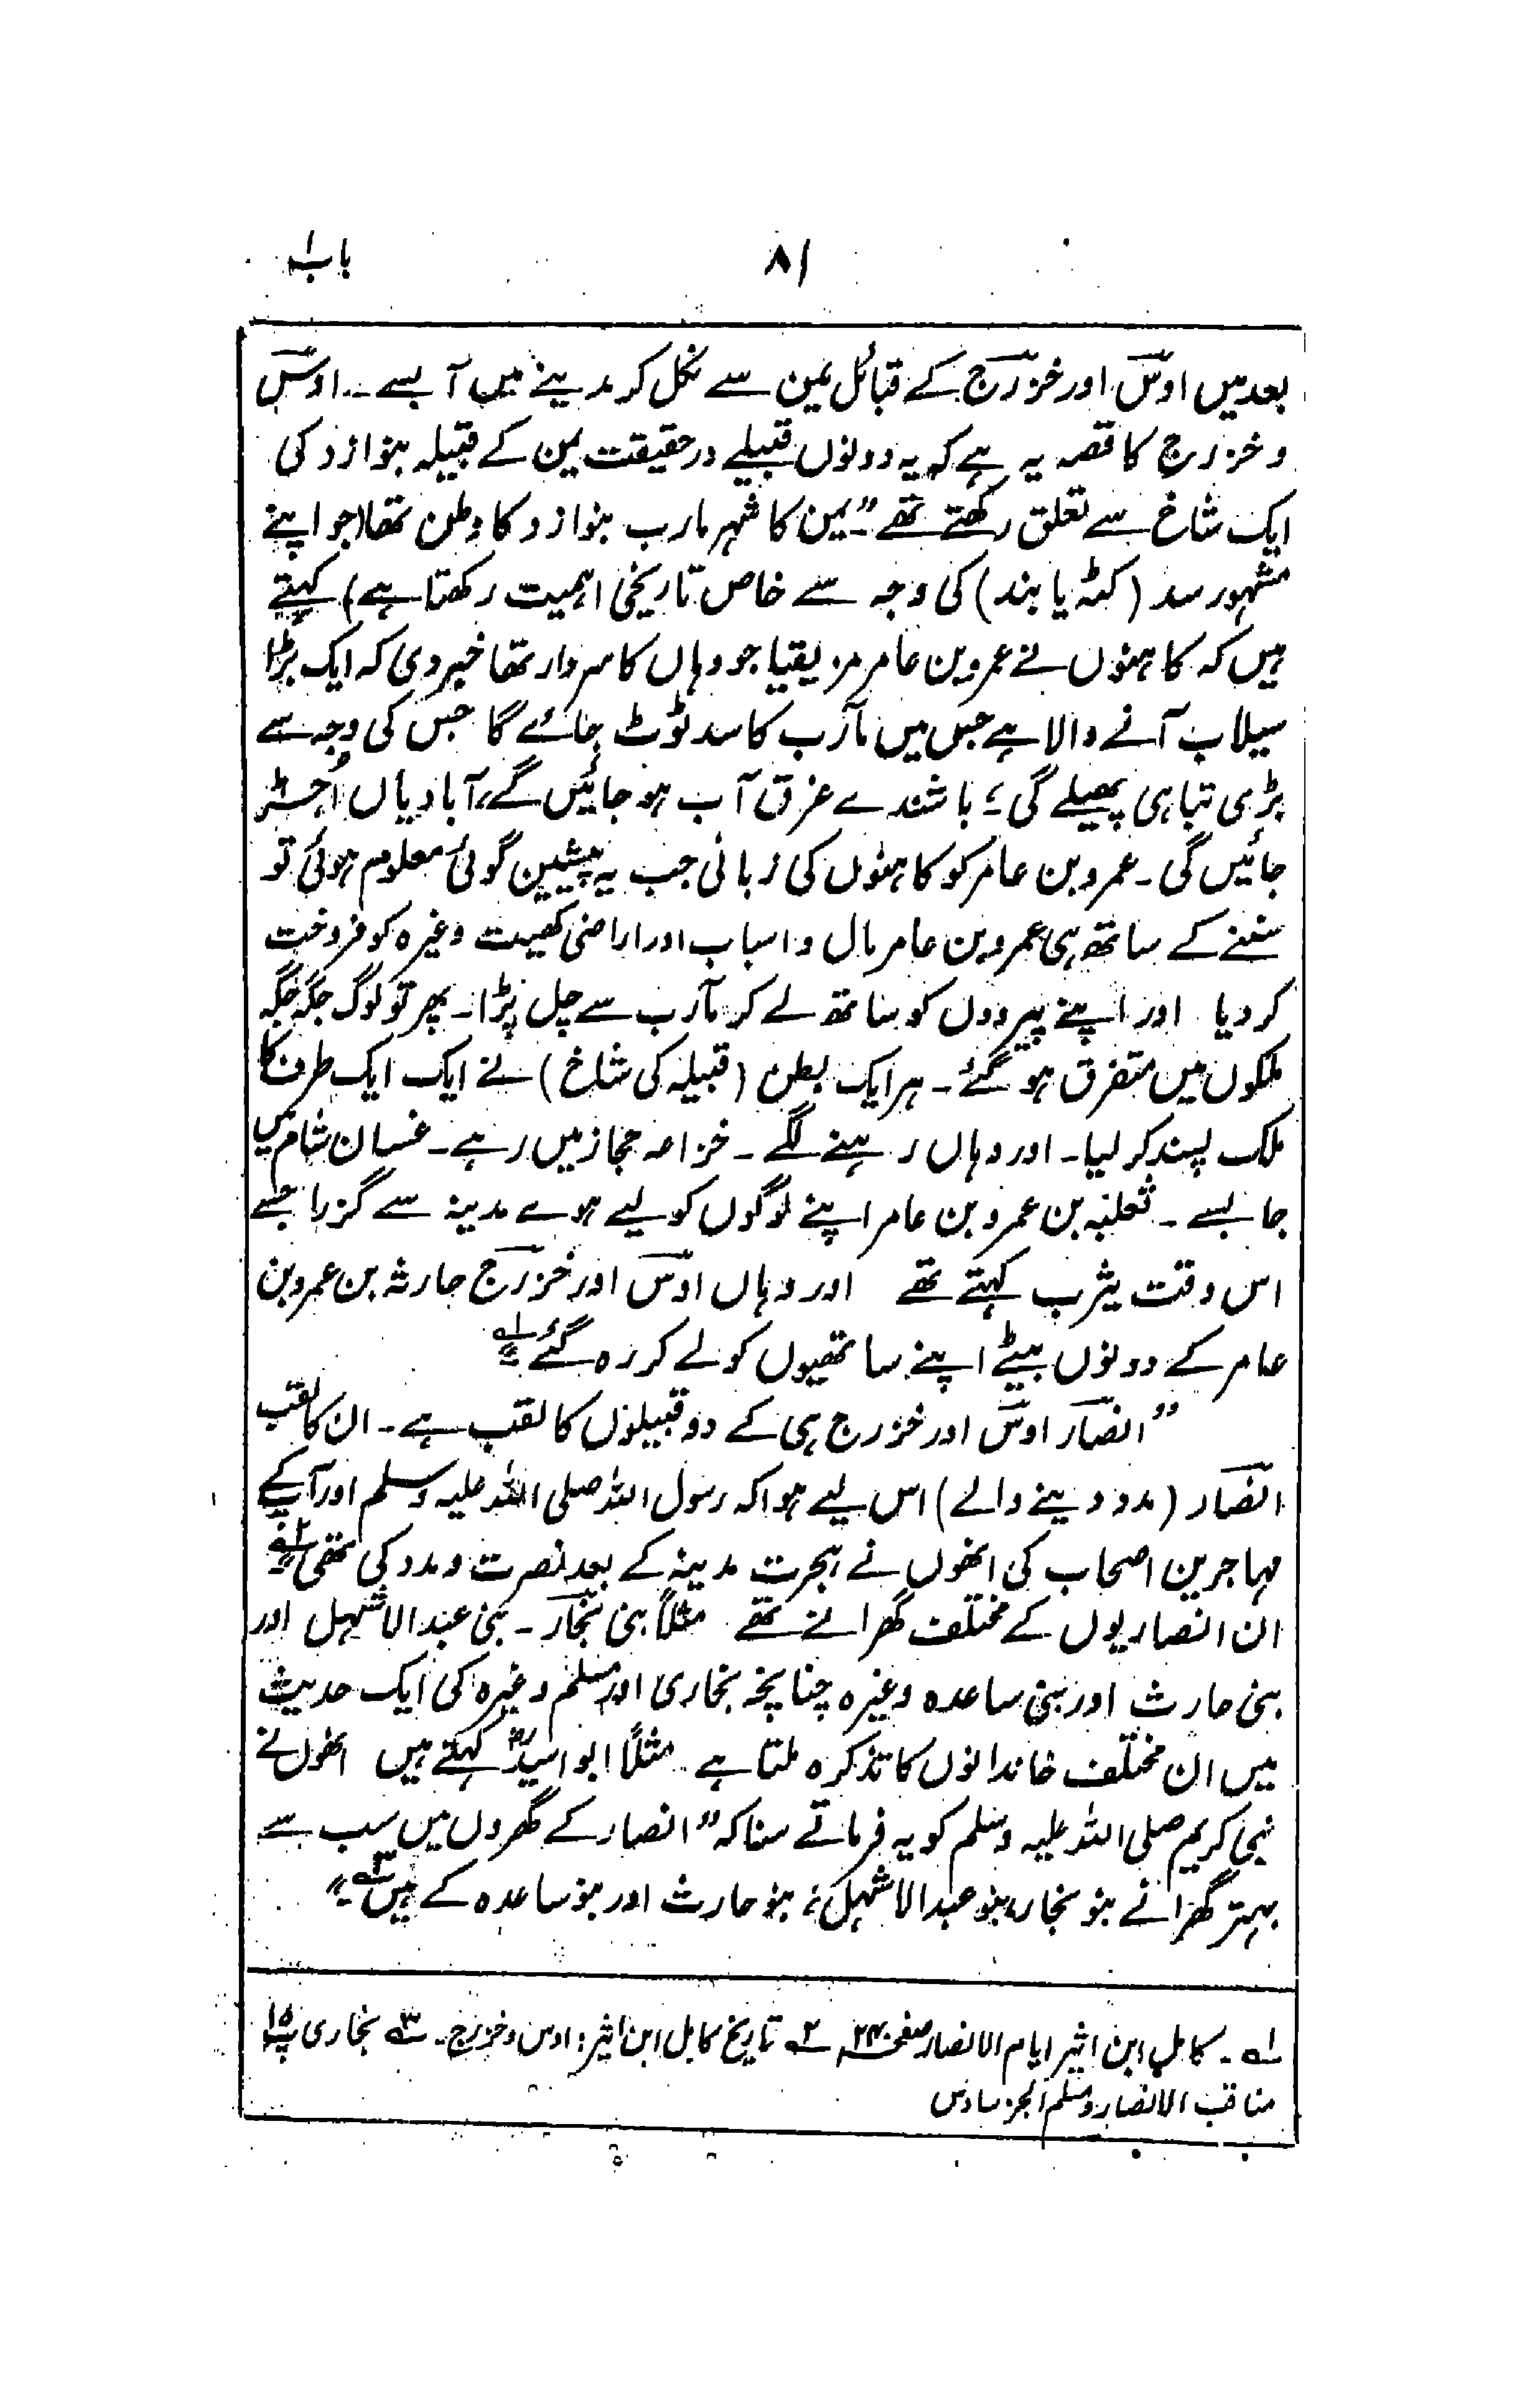 باب ۱
۸۱
بعد میں اوس اور خزرج کے قبائل یمن سے نکل کر مدینے میں آبسے ۔ اوس
و خزرج کا قصہ یہ ہے کہ یہ دونوں قبیلے درحقیقت یمن کے قبیلہ بنوازد کی
ایک شاخ سے تعلق رکھتے تھے "یمن کا شہر مارب بنوازد کا وطن تھا (جو اپنے
مشہور سد (کٹہ یا بند) کی وجہ سے خاص تاریخی اہمیت رکھتا ہے) کہتے
ہیں کہ کاہنوں نے عمرو بن عامر مزیقیا جو وہاں کا سردار تھا خبر دی کہ ایک بڑا
سیلاب آنے والا ہے جس میں مآرب کا سد ٹوٹ جائے گا جس کی وجہ سے
بڑی تباہی پھیلے گی؛ باشندے غرق آب ہو جائیں گے، آبادیاں اُجڑ
جائیں گی ۔ عمرو بن عامر کو کاہنوں کی زبانی جب یہ پیشین گوئی معلوم ہوئی تو
سننے کے ساتھ ہی عمرو بن عامر مال و اسباب اور اراضی کھیت وغیرہ کو فروخت
کر دیا اور اپنے پیرووں کو ساتھ لے کر مآرب سے چل پڑا۔ پھر تو لوگ جگہ جگہ
ملکوں میں متفرق ہو گئے ۔ ہر ایک بطن (قبیلہ کی شاخ) نے ایک ایک طرف کا
ملک پسند کر لیا۔ اور وہاں رہنے لگے ۔ خزاعہ حجاز میں رہے ۔ غسان شام میں
جا بسے ۔ ثعلبہ بن عمرو بن عامر اپنے لوگوں کو لیے ہوے مدینہ سے گزرا جسے
اس وقت یثرب کہتے تھے اور وہاں اوس اور خزرج حارثہ بن عمرو بن
عامر کے دونوں بیٹے اپنے ساتھیوں کو لے کر رہ گئے ۱ ؎"
"انصار اوس اور خزرج ہی کے دو قبیلوں کا لقب ہے ۔ ان کا لقب
انصار (مدد دینے والے) اس لیے ہوا کہ رسول اللہ صلی اللہ علیہ وسلم اور آپ کے
مہاجرین اصحاب کی انھوں نے ہجرت مدینہ کے بعد نصرت و مدد کی تھی ۲ ؎"
ان انصاریوں کے مختلف گھرانے تھے مثلاً بنی نجار ۔ بنی عبد الاشہل اور
بنی حارث اور بنی ساعدہ وغیرہ چنانچہ بخاری اور مسلم وغیرہ کی ایک حدیث
میں ان مختلف خاندانوں کا تذکرہ ملتا ہے ۔ مثلاً ابو اسیدؓ کہتے ہیں انھوں نے
نبی کریم صلی اللہ علیہ وسلم کو یہ فرماتے سنا کہ "انصار کے گھروں میں سب سے
بہتر گھرانے بنو نجار، بنو عبد الاشہل، بنو حارث اور بنو ساعدہ کے ہیں ۳ ؎"
۱ ؎ ۔ کامل ابن اثیر ایام الانصار صفحہ ۲۴۰ ۲ ؎ تاریخ کامل ابن اثیر : اوس و خزرج ۔ ۳ ؎ بخاری پ ۱۵
مناقب الانصار و مسلم الجز سادس